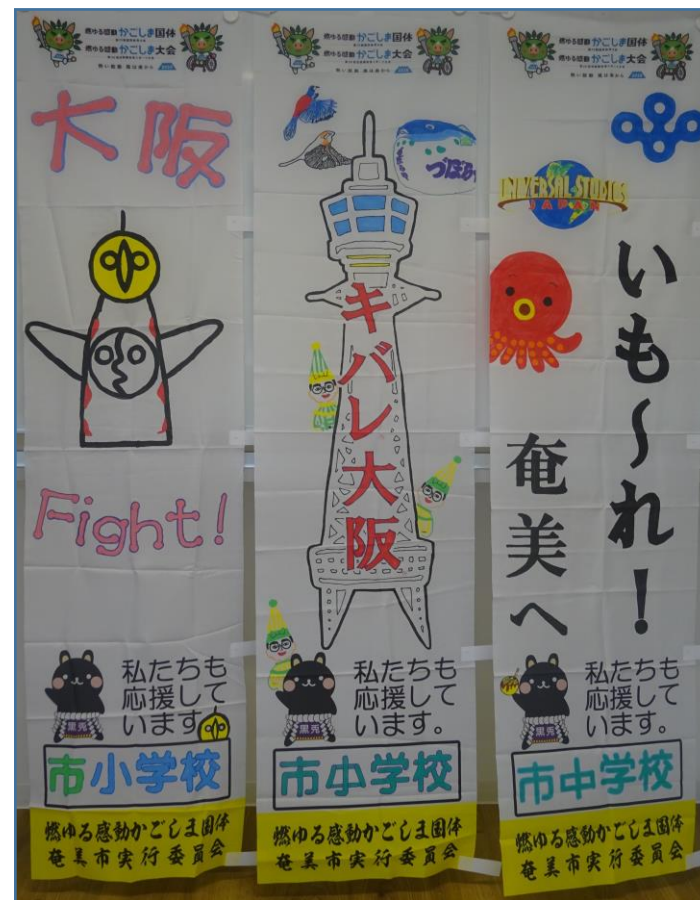 燃ゆる感動かごしま国体
燃ゆる感動かごしま大会
大阪
Fight!
私たちも
応援して
います。
黒兎
市小学校
燃ゆる感動かごしま国体
奄美市実行委員会
燃ゆる感動かごしま国体
燃ゆる感動かごしま大会
キバレ大阪
私たちも
応援して
います。
黒兎
市小学校
燃ゆる感動かごしま国体
奄美市実行委員会
燃ゆる感動かごしま国体
燃ゆる感動かごしま大会
UNIVERSAL STUDIOS
JAPAN
いも〜れ!
奄美へ
私たちも
応援して
います。
黒兎
市中学校
燃ゆる感動かごしま国体
奄美市実行委員会